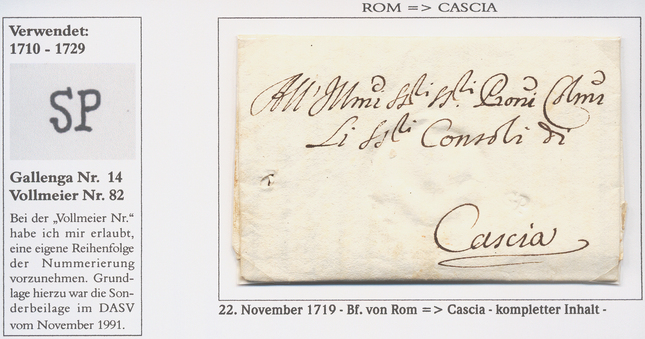 ROM => CASCIA
Verwendet:
1710 - 1729
SP
Gallenga Nr. 14
Vollmeier Nr. 82
Bei der „Vollmeier Nr.“
habe ich mir erlaubt,
eine eigene Reihenfolge
der Nummerierung
vorzunehmen. Grund-
lage hierzu war die Son-
derbeilage im DASV
vom November 1991.
All' Illmi SSti SSti Proni Colmi
Li SSti Consoli di
Cascia
22. November 1719 - Bf. von Rom => Cascia - kompletter Inhalt -